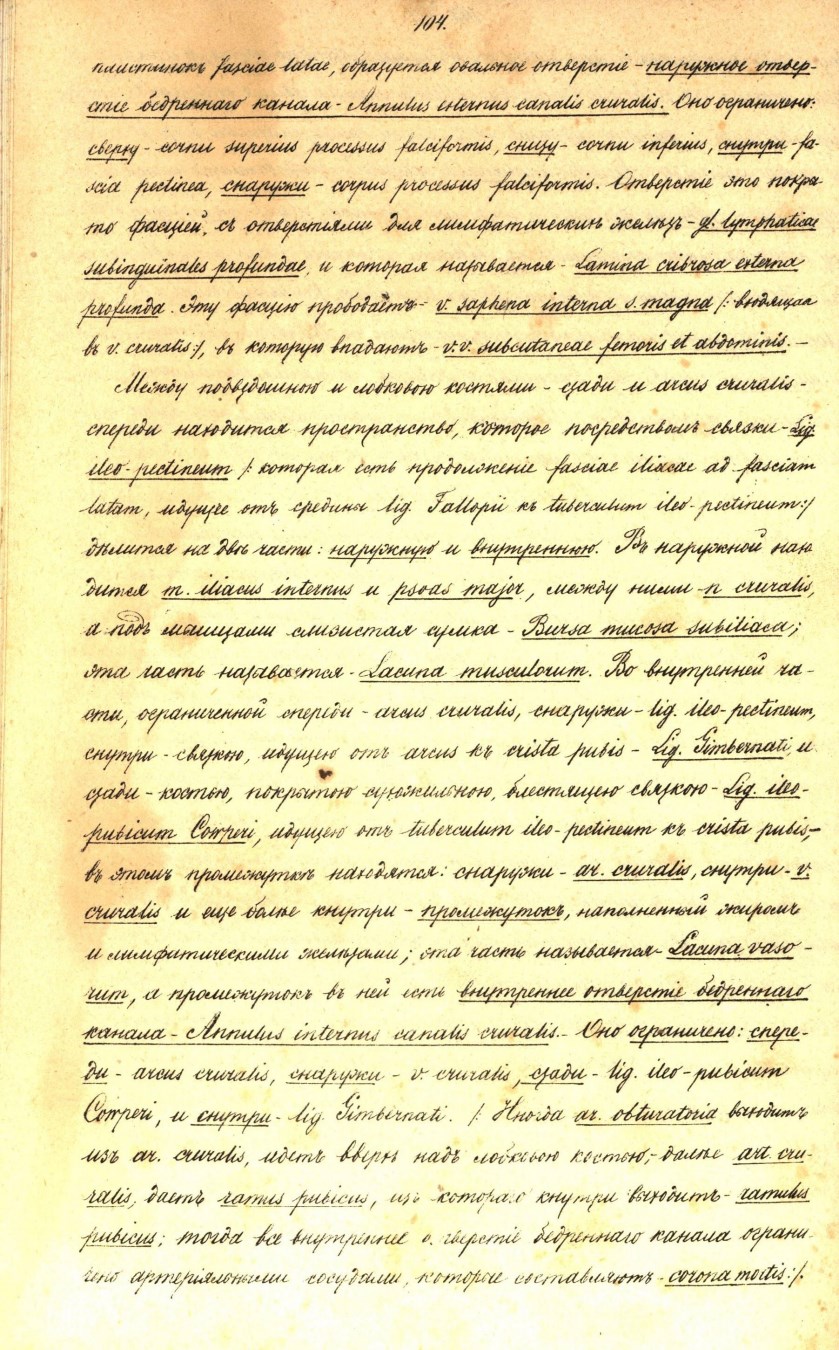 104.
пластинокъ fasciae latae, образуется овальное отверстіе - наружное отвер-
стіе бедреннаго канала - Annulus externus canalis cruralis. Оно ограничено:
сверху - cornu superius processus falciformis, снизу - cornu inferius, снутри - fa-
scia pectinea, снаружи - corpus processus falciformis. Отверстіе это покры-
то фасціей, съ отверстіями для лимфатическихъ железъ - gl. lymphaticae
subinguinales profundae, и которая называется - Lamina cribrosa externa
profunda. Эту фасцію прободаетъ - v. saphena interna s. magna /: входящая
въ v. cruralis:/, въ которую впадаютъ - v.v. subcutaneae femoris et abdominis. -
Между подвздошною и лобковою костями - сзади и arcus cruralis -
спереди находится пространство, которое посредствомъ связки - Lig.
ileo-pectineum /: которая есть продолженіе fasciae iliacae ad fasciam
latam, идущее отъ средины lig. Fallopii къ tuberculum ileo-pectineum:/
дѣлится на двѣ части: наружную и внутреннюю. Въ наружной нахо-
дится m. iliacus internus и psoas major, между ними - n cruralis,
а подъ мышцами слизистая сумка - Bursa mucosa subiliaca;
эта часть называется - Lacuna musculorum. Во внутренней ча-
сти, ограниченной спереди - arcus cruralis, снаружи - lig. ileo-pectineum,
снутри - связкою, идущею отъ arcus къ crista pubis - Lig. Gimbernati, и
сзади - костью, покрытою сухожильною, блестящею связкою - Lig. ileo-
pubicum Comperi, идущею отъ tuberculum ileo-pectineum къ crista pubis, -
въ этомъ промежуткѣ находятся: снаружи - ar. cruralis, снутри - v.
cruralis и еще болѣе кнутри - промежутокъ, наполненный жиромъ
и лимфатическими железами; эта часть называется - Lacuna vaso-
rum, а промежутокъ въ ней есть внутреннее отверстіе бедреннаго
канала - Annulus internus canalis cruralis. - Оно ограничено: спере-
ди - arcus cruralis, снаружи - v. cruralis, сзади - lig. ileo-pubicum
Comperi, и снутри - lig. Gimbernati. /: Иногда ar. obturatoria выходитъ
изъ ar. cruralis, идетъ вверхъ надъ лобковою костью, - далѣе art. cru-
ralis, даетъ ramus pubicus, изъ котораго кнутри выходитъ - ramulus
pubicus; тогда все внутреннее отверстіе бедреннаго канала ограни-
чено артеріяльными сосудами, которые составляютъ - corona mortis:/.